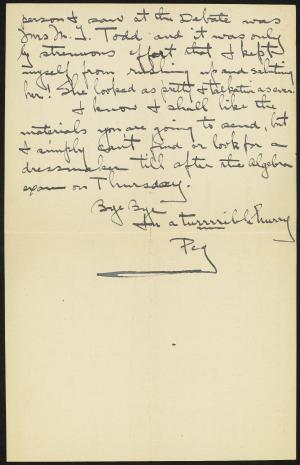 person I saw at the Debate was
Mrs M. L. Todd and it was only
by strenuous effort that I kept
myself from rushing up and
her. She looked as pretty & as ever.
I know I shall like the
materials you are going to send, but
I simply can't find or look for a
dressmaker till after the Algebra
exam on Thursday.
Bye Bye
In a turrrrible hurry
Peg